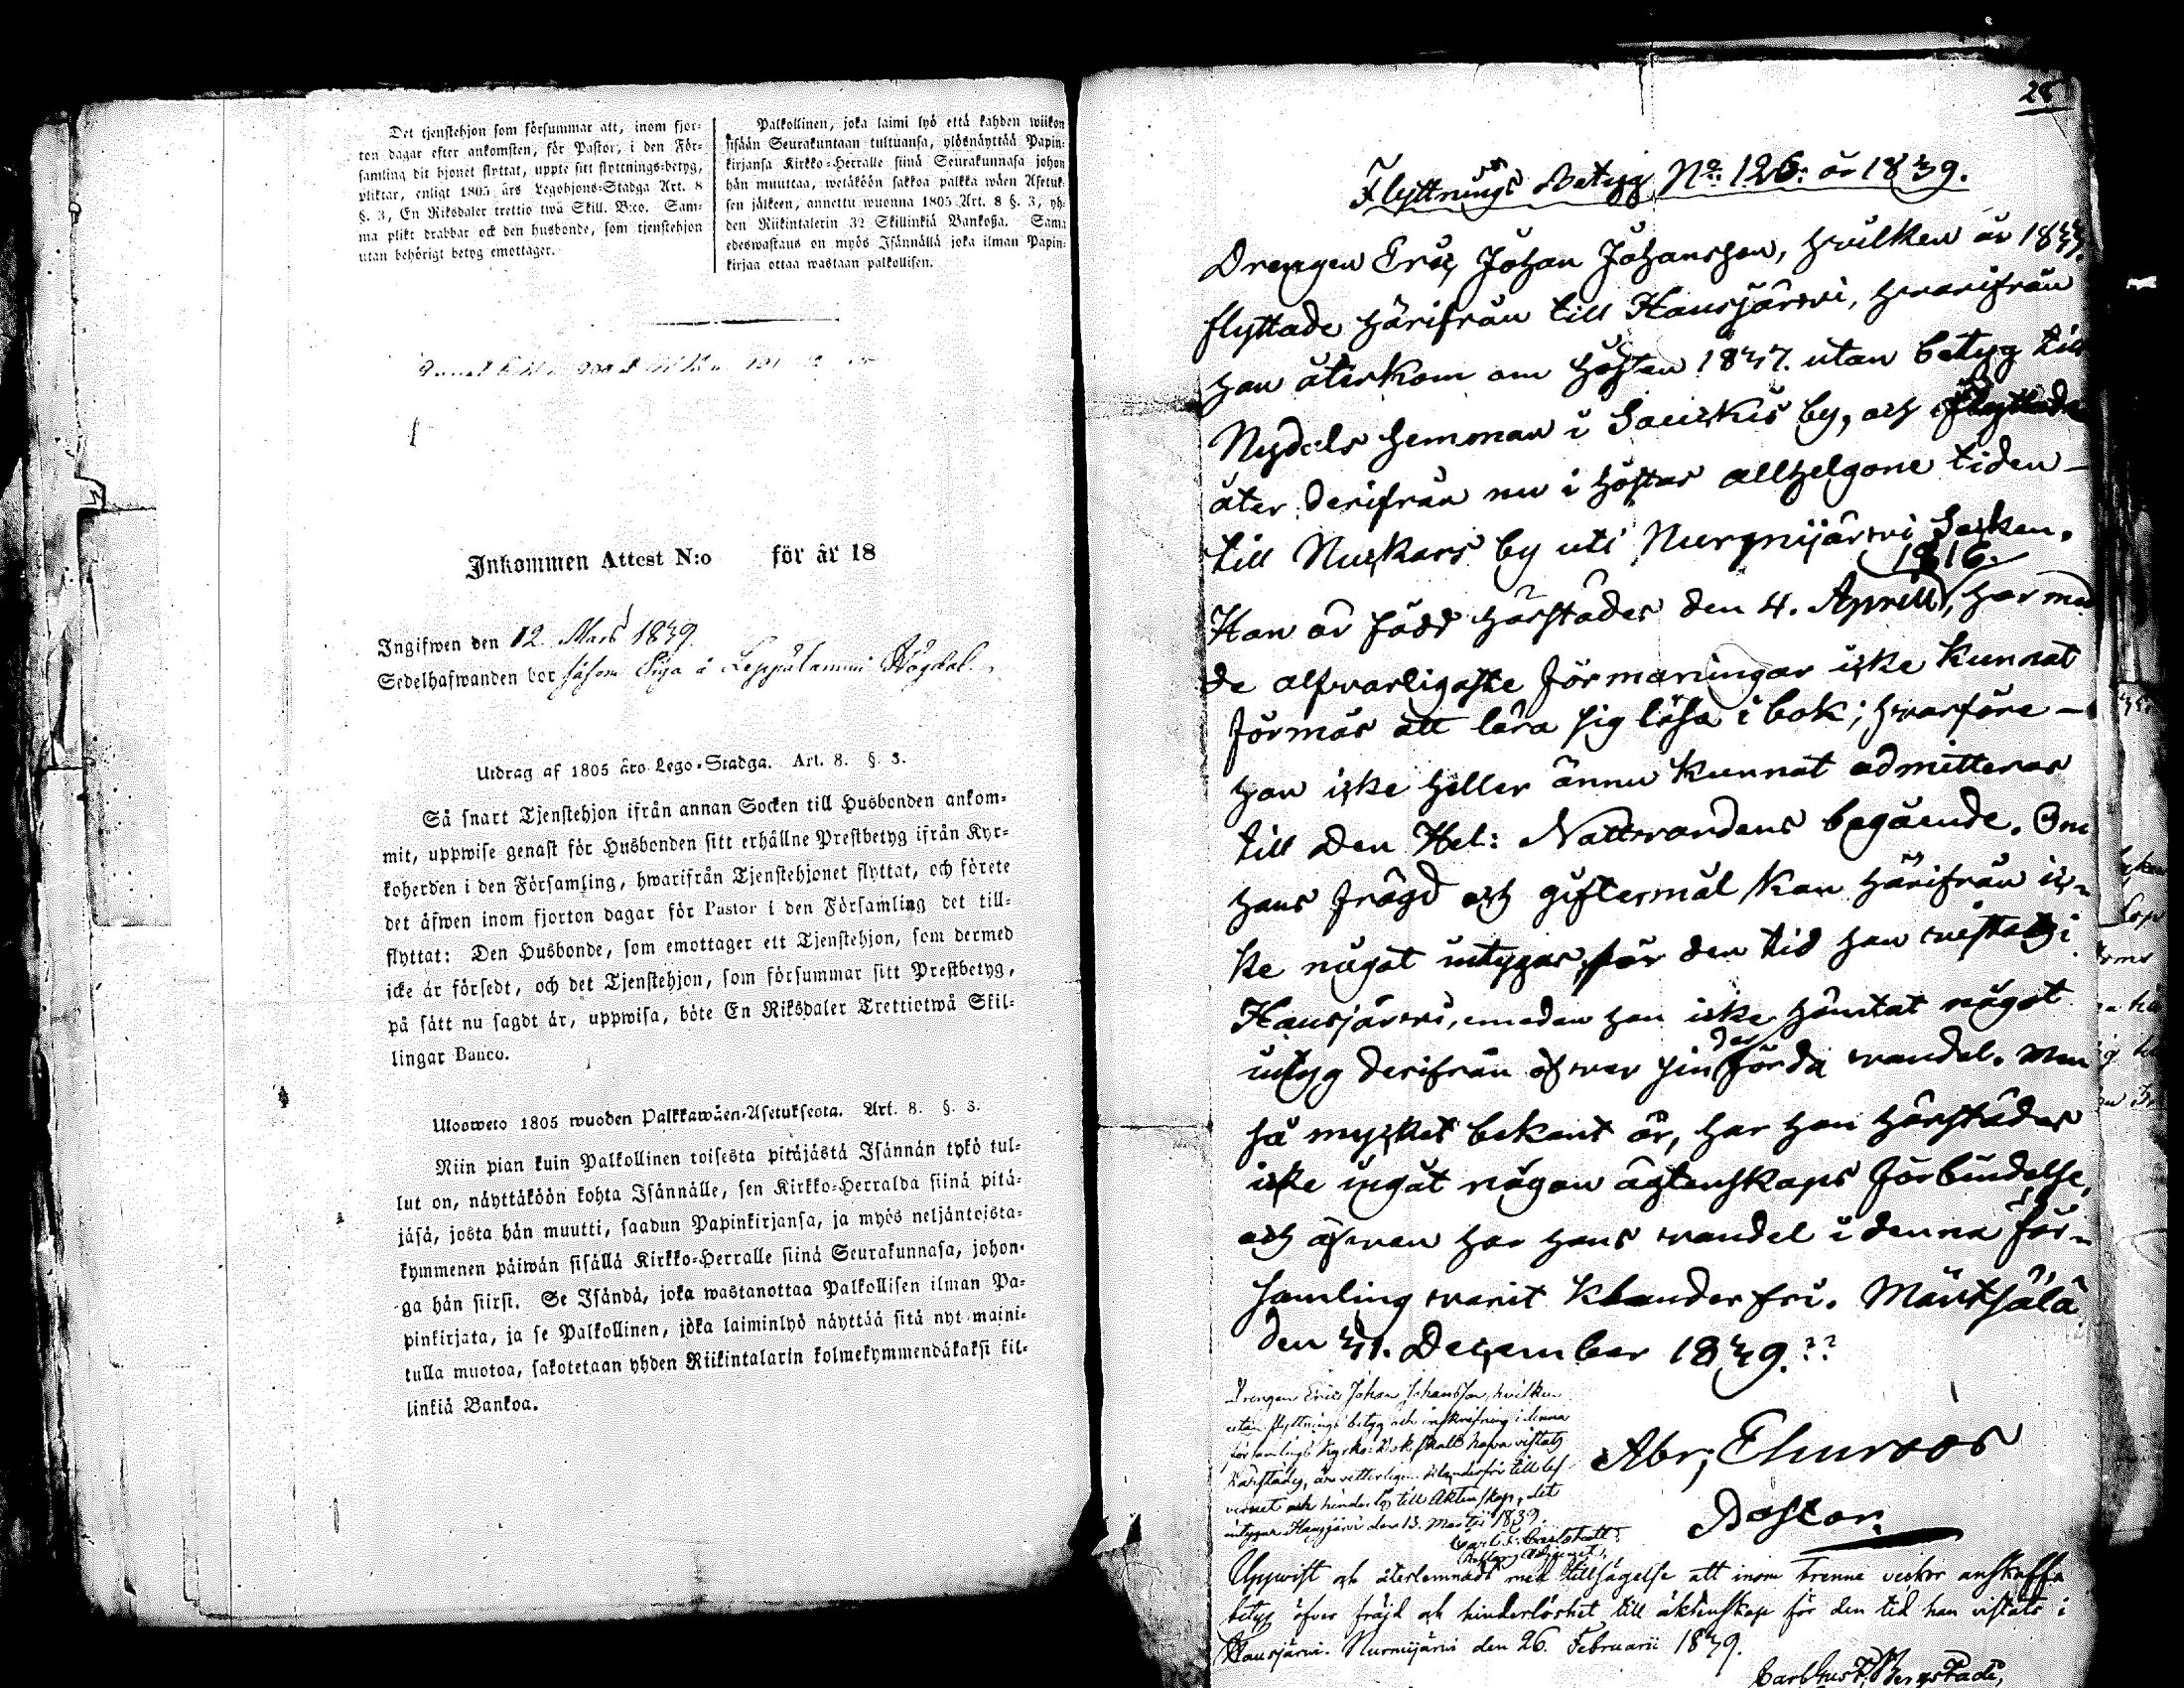 Det tjenstehjon som försummar att, inom fjor-
ton dagar efter ankomsten, för Pastor, i den För-
samling dit hjonet flyttat, uppte sitt flyttnings-betyg,
pliktar, enligt 1805 års Legohjons-Stadga Art. 8
§. 3, En Riksdaler trettio twå Skill. B:co. Sam-
ma plikt drabbar ock den husbonde, som tjenstehjon
utan behörigt betyg emottager.
Palkollinen, joka laimi lyö että kahden wiikon
sisään Seurakuntaan tultuansa, ylösnäyttää Papin-
kirjansa Kirkko-Herralle siinä Seurakunnasa johon
hän muuttaa, wetäköön sakkoa palkka wäen Asetuk-
sen jälkeen, annettu wuonna 1805 Art. 8 §. 3, yh-
den Riikintalerin 32 Skillinkiä Bankoßa. Sama
edeswastaus on myös Isännällä joka ilman Papin-
kirjaa ottaa wastaan palkollisen.
Inkommen Attest N:o för år 18
Ingifwen den 12 Mars 1839.
Sedelhafwanden bor såsom Piga å Leppälammi Högdal.
Utdrag af 1805 års Lego-Stadga. Art. 8. §. 3.
Så snart Tjenstehjon ifrån annan Socken till Husbonden ankom-
mit, uppwise genast för Husbonden sitt erhållne Prestbetyg ifrån Kyr-
koherden i den Församling, hwarifrån Tjenstehjonet flyttat, och förete
det äfwen inom fjorton dagar för Pastor i den Församling det till-
flyttat: Den Husbonde, som emottager ett Tjenstehjon, som dermed
icke är försedt, och det Tjenstehjon, som försummar sitt Prestbetyg,
på sätt nu sagdt är, uppwisa, böte En Riksdaler Trettiotwå Skil-
lingar Banco.
Uloosweto 1805 wuoden Palkkawäen-Asetuksesta. Art. 8. §. 3.
Niin pian kuin Palkollinen toisesta pitäjästä Isännän tykö tul-
lut on, näyttäköön kohta Isännälle, sen Kirkko-Herralda siinä pitä-
jäsä, josta hän muutti, saadun Papinkirjansa, ja myös neljäntoista-
kymmenen päiwän sisällä Kirkko-Herralle siinä Seurakunnasa, johon-
ga hän siirsi. Se Isändä, joka wastanottaa Palkollisen ilman Pa-
pinkirjata, ja se Palkollinen, joka laiminlyö näyttää sitä nyt maini-
tulla muotoa, sakotetaan yhden Riikintalarin kolmekymmendäkaksi kil-
linkiä Bankoa.
28
Flyttnings Betyg N:o 126: år 1839.
Drengen Eric Johan Johansson, hvilken år 1833.
flyttade härifrån till Hausjärwi, hwarifrån
han återkom om hösten 1837. utan betyg till
Nydals hemman i Sauikis by, och flyttade
åter derifrån nu i höstas allhelgone tiden -
till Nuckars by uti Nurmijärwi Socken.
Han är född härstädes den 4. Aprill 1816, har med
de alfvarligaste förmaningar icke kunnat
förmås att lära sig läsa i bok; hwarföre -
han icke heller ännu kunnat admitteras
till Den Hel: Nattwardens begående. Om
hans frägd och giftermål kan härifrån ic-
ke något intygas för den tid han wistats i
Hausjärwi, emedan han icke hämtat något
intyg derifrån öfwer sin der förda wandel. Men
så mycket bekant är, har han härstädes
icke ingåt någon ägtenskaps förbindelse,
och äfwen har hans wandel i denna för-
samling warit klanderfri. Mäntsälä
den 31. December 1839.
Abr; Elmroos
Pastor.
Drengen Eric Johan Johansson, hvilken
utan flyttnings betyg och inskrifning i denna
församlings Kyrko-Bok skall hafva vistats
härstädes, är vetterligen klanderfri till lef-
vernet och hinderlös till Äktenskap, det
intygar Hausjärvi den 13. Martii 1839.
Uppwist och återlemnadt med tillsägelse att inom trenne veckor anskaffa
betyg öfver fräjd och hinderlöshet till äktenskap för den tid han vistats i
Hausjärvi. Nurmijärvi den 26. Februarii 1839.
Carl Gust. Bergstadi,